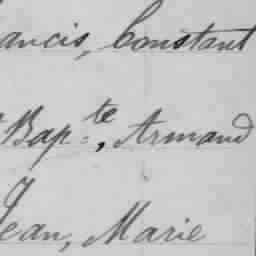 ancis, Constant
Bap.te, Armand
Jean, Marie